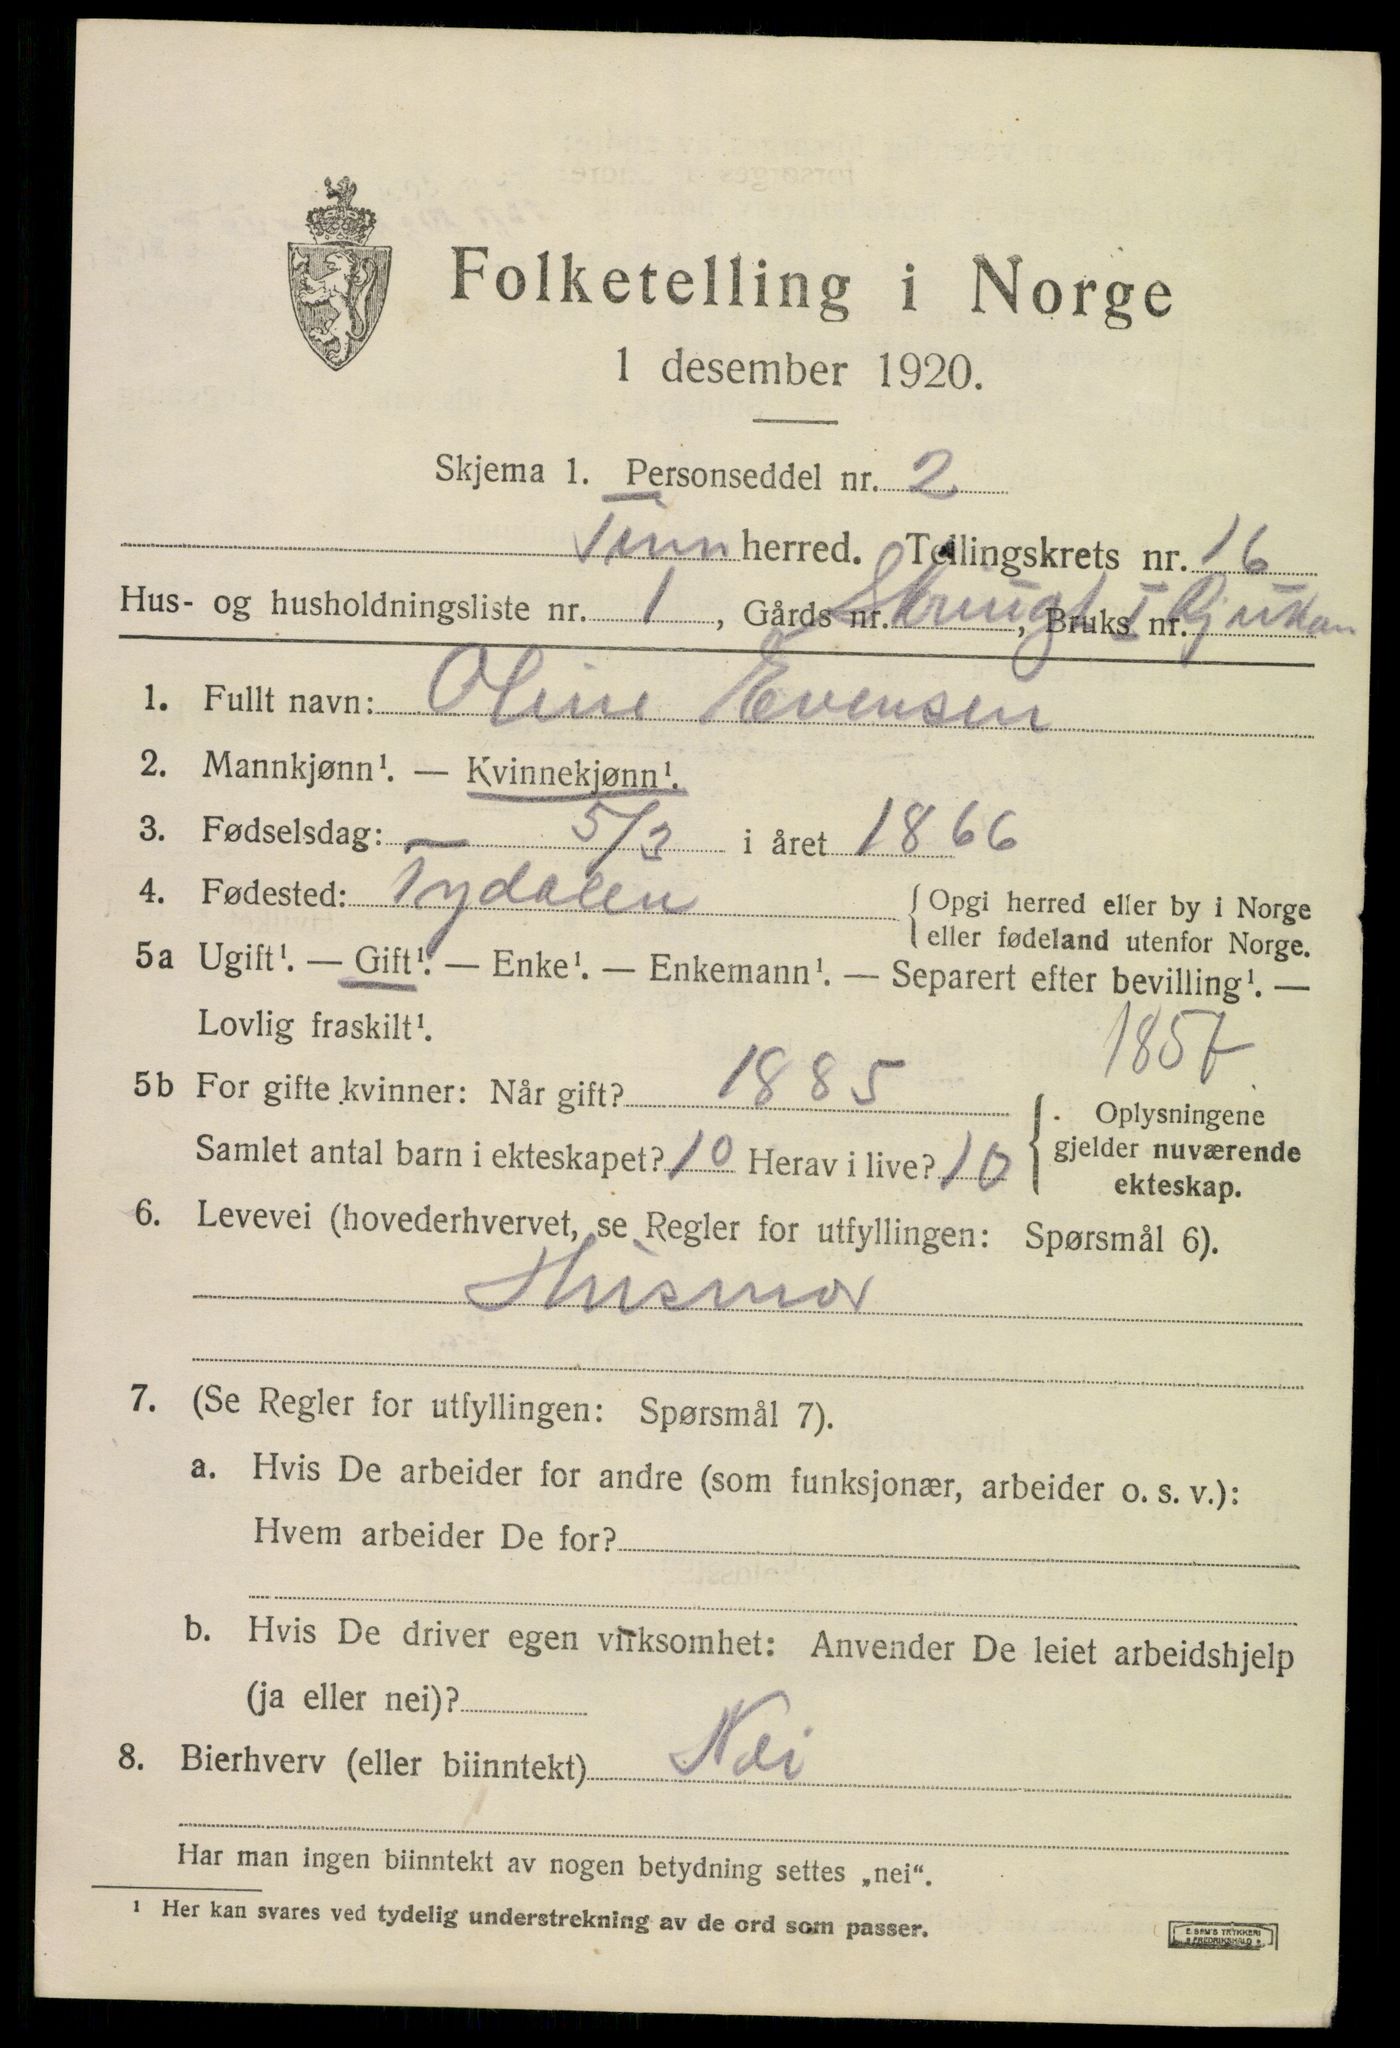 Folketelling i Norge
1 desember 1920.
Skjema 1. Personseddel nr. 2
Tinn herred. Tellingskrets nr. 16
Hus- og husholdningsliste nr. 1, Gårds nr. , Bruks nr. I Rjukan
1. Fullt navn: Oline Evensen
2. Mannkjønn¹. — Kvinnekjønn¹.
3. Fødselsdag: 5/3 i året 1866
4. Fødested: Tydalen { Opgi herred eller by i Norge
eller fødeland utenfor Norge.
5a Ugift¹. — Gift¹. — Enke¹. — Enkemann¹. — Separert efter bevilling¹. —
Lovlig fraskilt¹.
1857
5b For gifte kvinner: Når gift? 1885
Samlet antal barn i ekteskapet? 10 Herav i live? 10
{ Oplysningene
gjelder nuværende
ekteskap.
6. Levevei (hovederhvervet, se Regler for utfyllingen: Spørsmål 6).
Husmor
7. (Se Regler for utfyllingen: Spørsmål 7).
a. Hvis De arbeider for andre (som funksjonær, arbeider o. s. v.):
Hvem arbeider De for?
b. Hvis De driver egen virksomhet: Anvender De leiet arbeidshjelp
(ja eller nei)?
8. Bierhverv (eller biinntekt) Nei
Har man ingen biinntekt av nogen betydning settes „nei“.
¹ Her kan svares ved tydelig understrekning av de ord som passer.
E SEM'S TRYKKERI
FREDRIKSHALD